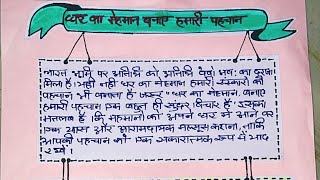 घर का मेहमान बनाए हमारी पहचान
भारत भूमि पर अतिथि को अतिथि देवो भवः का दर्जा
मिला है। यही नही घर का मेहमान हमारी संस्कारो की
पहचान भी बनाता है जरूर "घर का मेहमान, बनाए
हमारी पहचान एक बहुत ही सुंदर विचार है। इसका
मतलब है। कि मेहमानो को अपने घर में आने पर
एक खास और आरामदायक महसूस कराना, ताकि
आपकी पहचान को एक सकारात्मक रूप में याद
रखे।